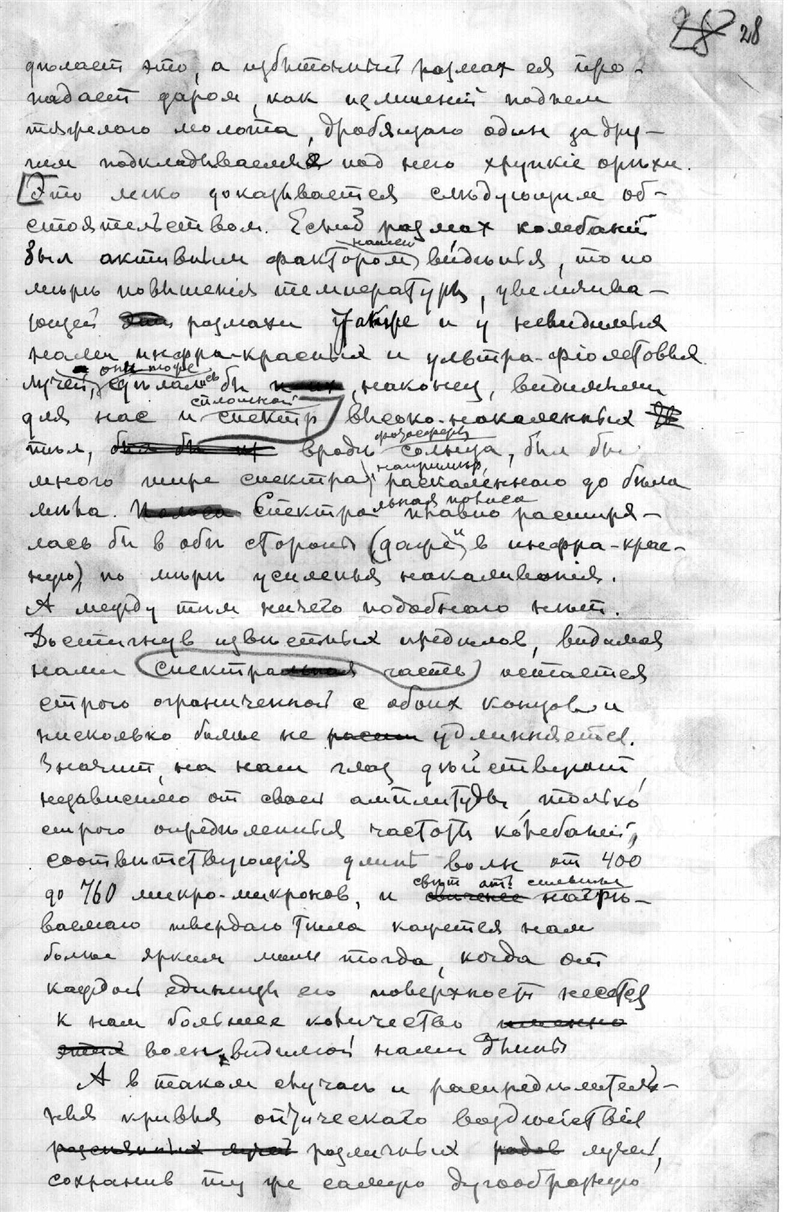 28 28
дѣлаетъ это, а избыточный размах ея про-
падает даром, как излишній подъем
тяжелаго молота, дробящаго один за дру-
гим подкладываемые под него хрупкіе орѣхи.
[Это легко доказывается слѣдующим об-
стоятельством. Если б размах колебаній
был активным фактором нашей видѣнія, то по
мѣрѣ повышенія температуры, увеличива-
ющей размахи также и у невидимыя
нами инфра-красныя и ультра-фіолетовыя
лучей, они тоже сдѣлались бы, наконец, видимыми
для нас и сплошной спектр высоко-накаленных
тѣл, вродѣ фотосферы солнца, был бы
много шире спектра, например, раскаленнаго до бѣла
мѣла. Спектральная полоса плавно расширя-
лась бы в обѣ стороны (даже и в инфра-крас-
ную) по мѣрѣ усиленья накаливанія.
А между тѣм ничего подобнаго нѣт.
Достигнув извѣстных предѣлов, видимая
нами спектра часть остается
строго ограниченной с обоих концов и
нисколько болѣе не удлинняется.
Значит, на наш глаз дѣйствуют,
независимо от своей амплитуды, только
строго опредѣленныя частоты колебаній,
соотвѣтствующія длинѣ волн от 400
до 760 микро-микронов, и свѣт от сильнѣе нагрѣ-
ваемаго твердаго тѣла кажется нам
болѣе ярким лишь тогда, когда от
каждой единицы его поверхности несется
к нам большее количество
волн видимой нами длины
А в таком случаѣ и распредѣлитель-
ныя кривыя оптическаго воздѣйствія
различных лучей,
сохранив ту же самую дугообразную